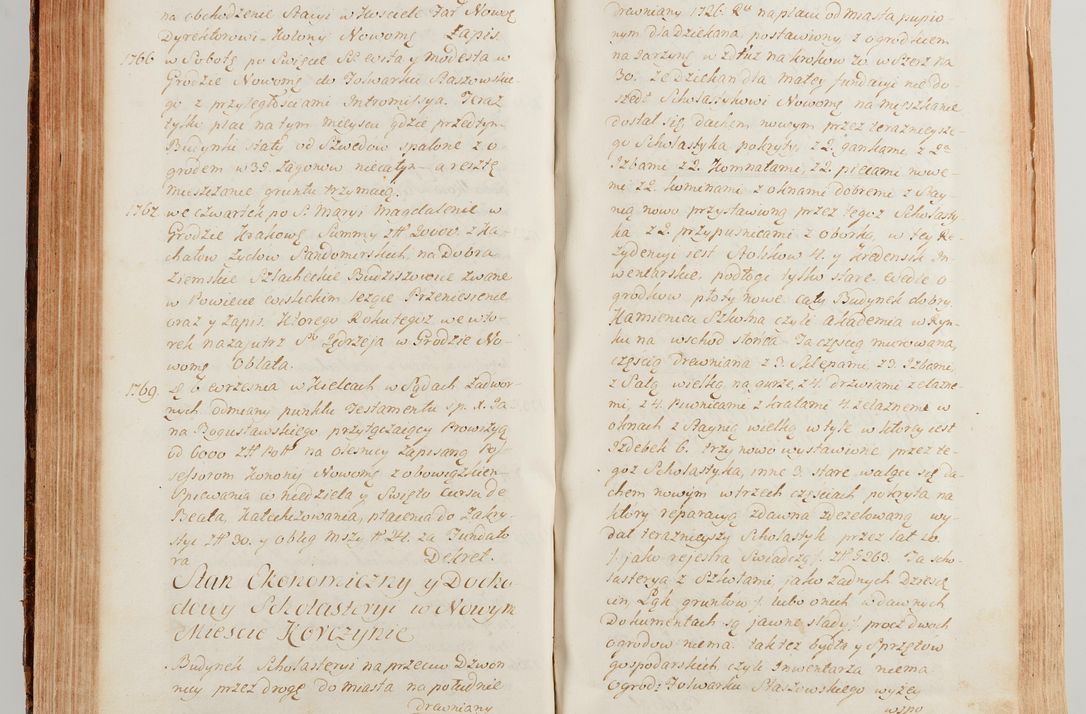 na obchodzenie Stacyi w Kosciele Far Nowomę
Dyrektorowi Kolony Nowomę Zapis.
1766 w Sobotę po Swięcie SS: Wita y Modesta w
Grodzie Nowomę do Folwarku Staszowskie-
go z przyległosciami Intromissya. Teraz
tylko plac na tym mieyscu gdzie przedtym
Budynki stały od Szwedow spalone z o-
grodem w 35. Zagonow a resztę
Mieszczanie gruntu trzymaią.
1767. we czwartek po S: Maryi Magdalenie w
Grodzie Krakowę Summy zł 20000. z Ka-
chałow Zydow Sandomirskich, na Dobra
Ziemskie Szlacheckie Budziszowice zwane
w Powiecie Wislickim lezące Przeniesienie
oraz y Zapis. Ktorego Roku tegoz we wto-
rek nazaiutrz Sgo Jędrzeja w Grodzie No-
womę Oblata.
1769. D. 6 Wrzesnia w Kielcach w Sądach Zadwor-
nych odmiany punktu Testamentu s.p. X. Ja-
na Bogusławskiego przyłączaiący Prowizyą
od 6000 zł Pol: na Olesnicy zapisaną Pos-
sessorom Kanonij Nowomę z obowiązkiem
Spiewania w niedziela y Swięto Cursu de
Beata, Katechizowania, płacenia do Zakry-
styi zł 30. y obleg Mszy N 24. za Fundato-
ra Dekret.
Stan Ekonomiczny y Docho-
dowy Scholasteryi w Nowym
Miescie Korczynie
Budynek Scholasteryi na przeciw Dzwon
nicy przez drogę do miasta na południe
drewniany
drewniany 1726. Ru na placu od miasta kupio-
nym dla Dziekana postawiony, z ogrodkiem
na Jarzynę w Zdłuz na krokow 20 wszerz na
30. Ze Dziekan dla małey fundacyi nie do-
szedł Scholastykowi Nowomę na mieszkanie
dostał się, dachem nowym przez terazniejsze-
go Scholastyka pokryty, z 2. gankami, z 2ma
Izbami z 2. Komnatami, z 2. piecami nowe-
mi z 2. kominami z oknami dobremi z Stay-
nią nowo przystawioną przez tegoz Scholasty-
ka z 2. przypusnicami z oborką, w tey Re-
zydencyi iest Stolikow 4. y Kredensik In-
wentarskie, podłogi tylko stare. Wkoło o-
grodkow płoty nowe cały Budynek dobry.
Kamienica Szkolna czyli Akademia w Ryn-
ku na wschod słonca. Ta częscią murowana,
częscią drewniana z 3. Sklepami z 3. Izbami,
z Salą wielką na gurze, z 4. drzwiami zelazne-
mi, z 4. Piwnicami z kratami 4. zelaznemi w
oknach z Staynią wielką w tyle w ktorey iest
Izdebek 6. trzy nowo wystawione przez te-
goz Scholastyka, inne 3. stare walące się da-
chem nowym w trzech częsciach pokryta na
ktory reparacyą zdawna zdezelowaną wy-
dał terazniejszy Scholastyk przez lat 20
/: jako rejestra swiadczą :/. zł 5263. Ta scho-
lasteryą z Szkołami, jako zadnych Dziesię
cin, Łąk gruntow /: lubo onych w dawnych
Dokumentach są jawne slady :/ procz dwoch
ogrodow niema. takzez bydła y Sprzętow
gospodarskich czyli Inwentarza niema.
Ogrod: Folwarku Staszowskiego wyzey
wspo